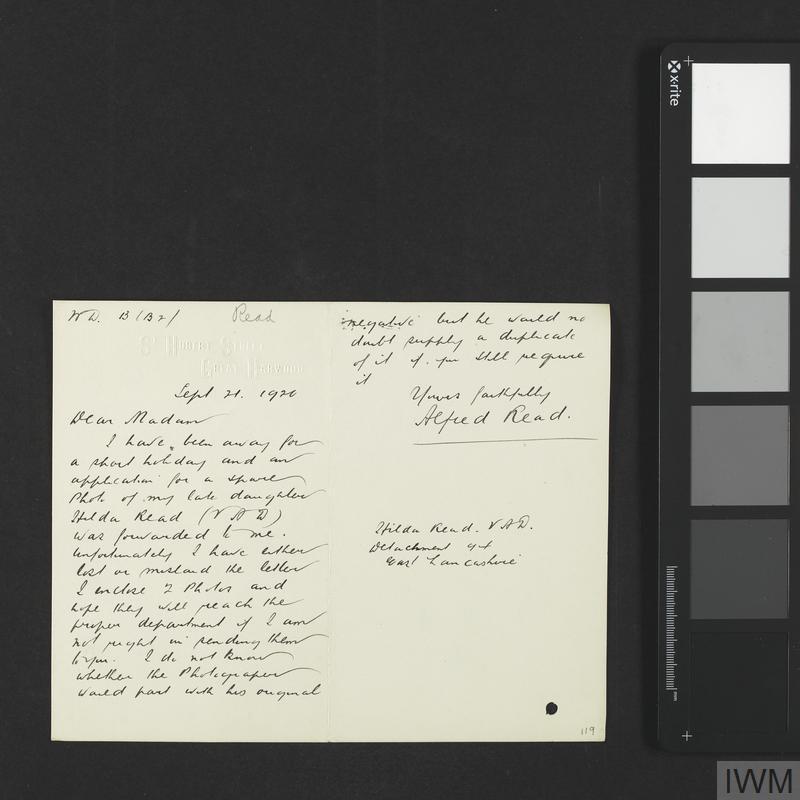 VD. B (B2)
Read
Hubert Street
Great Harwood
Sept 21. 1920
Dear Madam
I have been away for
a short holiday and an
application for a spare
Photo of my late daughter
Hilda Read (VAD)
was forwarded to me.
Unfortunately I have either
lost or mislaid the letter
I enclose 2 Photos and
hope they will reach the
proper department if I am
not right in sending them
to you. I do not know
whether the Photographer
would part with his original
negative but he would no
doubt supply a duplicate
of it if you still require
it
Yours faithfully
Alfred Read.
Hilda Read. VAD.
Detachment 94
East Lancashire
119
x·rite
mm
IWM